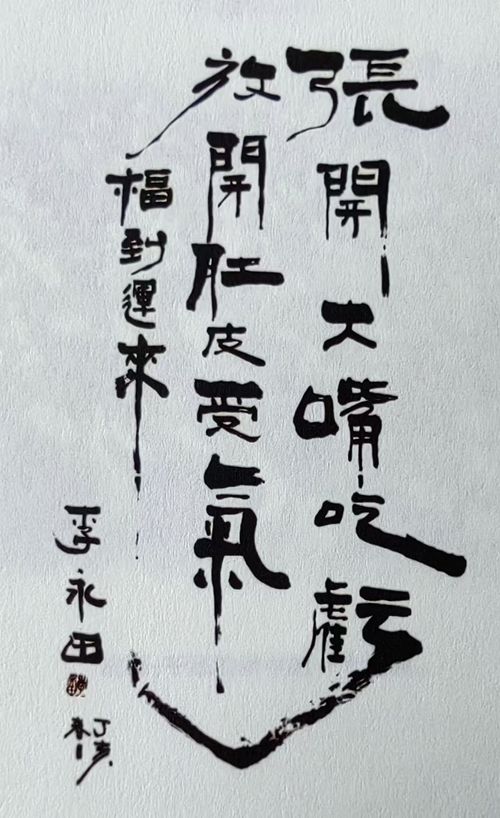 張開大嘴吃虧
放開肚皮受氣
福到運來
李永田
丁亥春